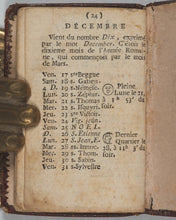 (24)
DÉCEMBRE
Vient du nombre Dix, exprimé
par le mot December. C'étoit le
dixieme mois de l'Année Romai-
ne, qui commençoit par le mois
de Mars.
Ven. 17 steBegge
Sam. 18 s. Gatien
4 D. 19 s. Nemese
Lun. 20 s. Zéphir.
Mar. 21 s. Thomas
Mer. 22 s.
Jeu. 23 ste Victoir
Ven. 24 Vig. jeûn
Sam. 25 NOEL
D. 26 s. Etienne
Lun. 27 s. Jean, E.
Mar. 28 ss. Innoc.
Mer. 29 s. Thom.
Jeu. 30 s. Sabin
Ven. 31 s. Sylvestre
Pleine
Lune le 21,
à 1h 53'
soir.
Dernier
Quartier le
28, à
soir.